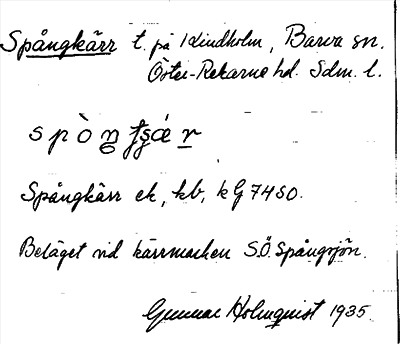 Spångkärr t. på Lindholm, Barva sn.
Öster-Rekarne hd. Sdm. l.
Spångkärr ek, kb, k G 7450.
Beläget vid kärrmarken S.Ö. Spångsjön.
Gunnar Holmquist 1935.